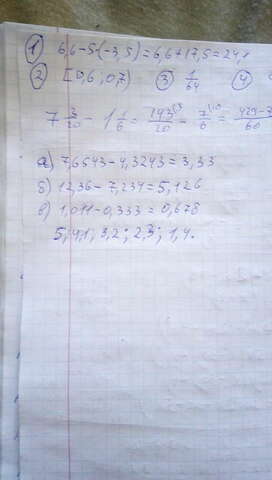 ① 6,6-5·(-3,5)=6,6+17,5=24,1
② [0,6; 0,7) ③ 1/64 ④
7 3/20 - 1 1/6 = 143/20 - 7/6 = 429-7/60
а) 7,6543-4,3243=3,33
б) 12,36-7,234=5,126
в) 1,011-0,333=0,678
5; 4,1; 3,2; 2,3; 1,4.